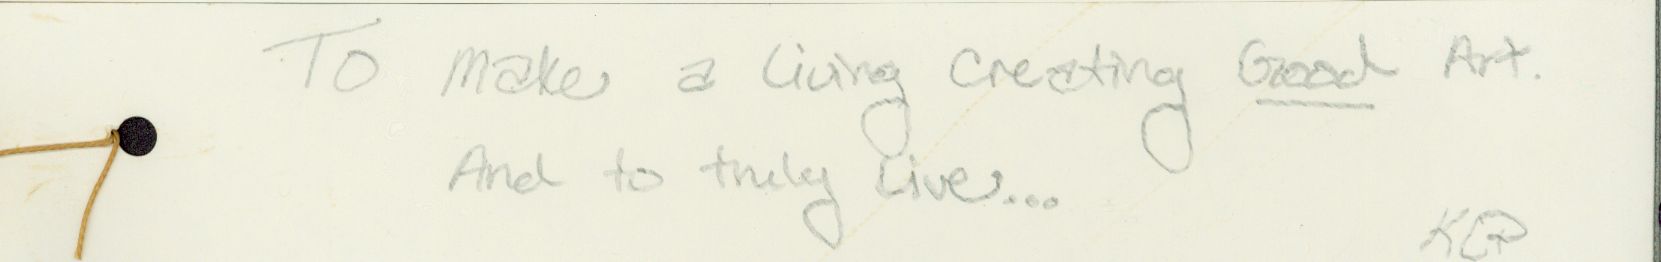 To Make a Living Creating Good Art.
And to truly Live...
KGP